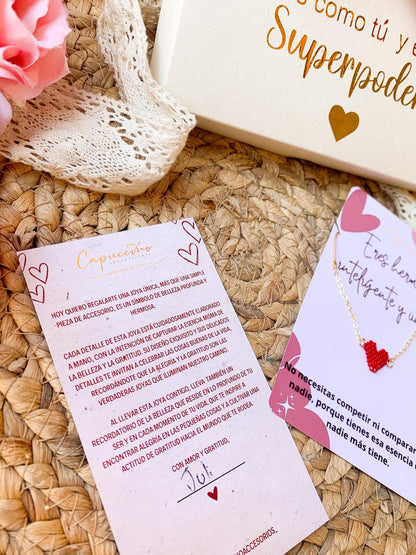 como tú y e
Superpode
Capuccino
HOY QUIERO REGALARTE UNA JOYA ÚNICA, MÁS QUE UNA SIMPLE
PIEZA DE ACCESORIO, ES UN SÍMBOLO DE BELLEZA PROFUNDA Y
HERMOSA.
CADA DETALLE DE ESTA JOYA ESTÁ CUIDADOSAMENTE ELABORADO
A MANO, CON LA INTENCIÓN DE CAPTURAR LA ESENCIA MISMA DE
LA BELLEZA Y LA GRATITUD. SU DISEÑO EXQUISITO Y SUS DELICADOS
DETALLES TE INVITAN A CELEBRAR LAS COSAS BUENAS DE LA VIDA,
RECORDÁNDOTE QUE LA ALEGRÍA Y LA GRATITUD SON LAS
VERDADERAS JOYAS QUE ILUMINAN NUESTRO CAMINO.
AL LLEVAR ESTA JOYA CONTIGO, LLEVA TAMBIÉN UN
RECORDATORIO DE LA BELLEZA QUE RESIDE EN LO PROFUNDO DE TU
SER Y EN CADA MOMENTO DE TU VIDA. QUE TE INSPIRE A
ENCONTRAR ALEGRÍA EN LAS PEQUEÑAS COSAS Y A CULTIVAR UNA
ACTITUD DE GRATITUD HACIA EL MUNDO QUE TE RODEA.
CON AMOR Y GRATITUD,
Juli
OACCESORIOS_
Eres herm
inteligente y ún
No necesitas competir ni comparar
nadie, porque tienes esa esencia
nadie más tiene.